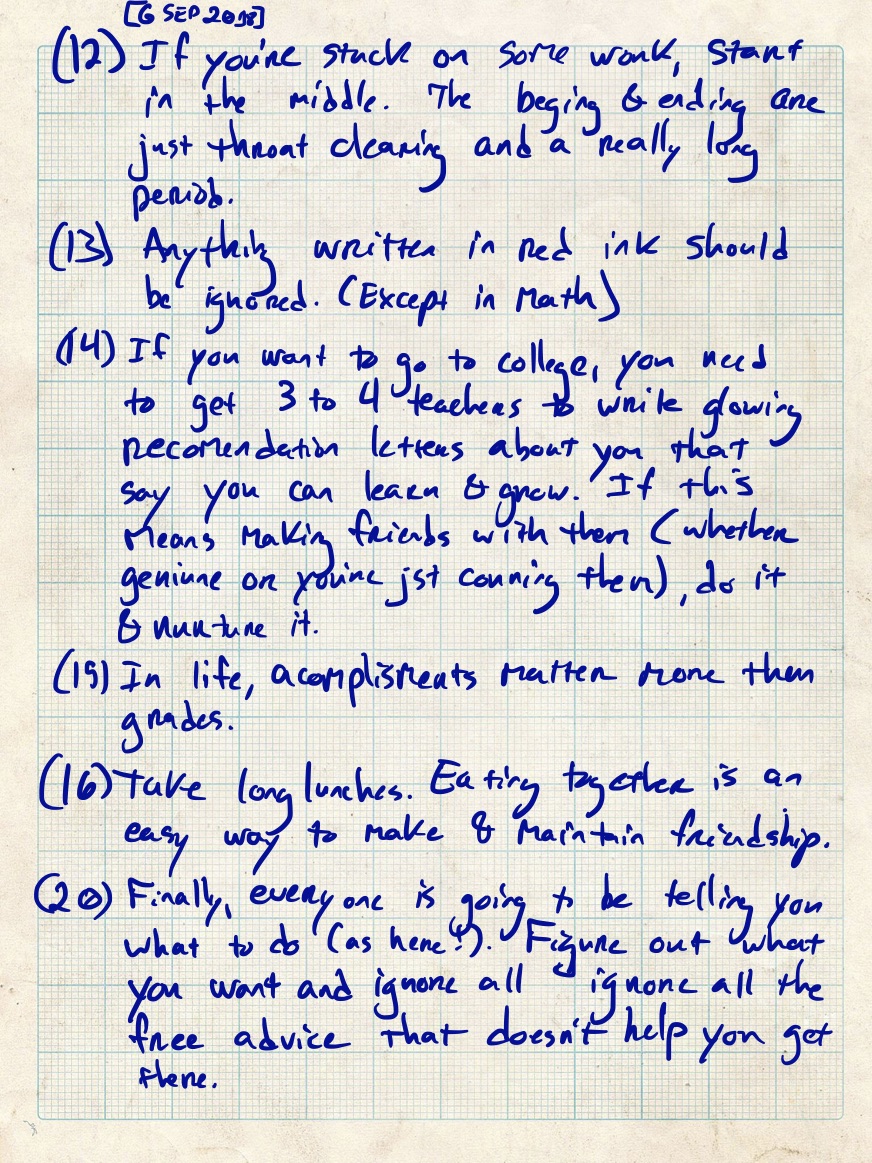 [6 SEP 2018]
(12) If you're stuck on some work, start
in the middle. The beging & ending are
just throat clearing and a really long
period.
(13) Anything written in red ink should
be ignored. (Except in Math)
(14) If you want to go to college, you need
to get 3 to 4 teachers to write glowing
recomendation letters about you that
say you can learn & grow. If this
means making friends with them (whether
geniune or you're jst conning them), do it
& nurture it.
(15) In life, acomplisments matter more then
grades.
(16) Take long lunches. Eating together is an
easy way to make & maintain friendship.
(20) Finally, everyone is going to be telling you
what to do (as here!). Figure out what
you want and ignore all ignore all the
free advice that doesn't help you get
there.